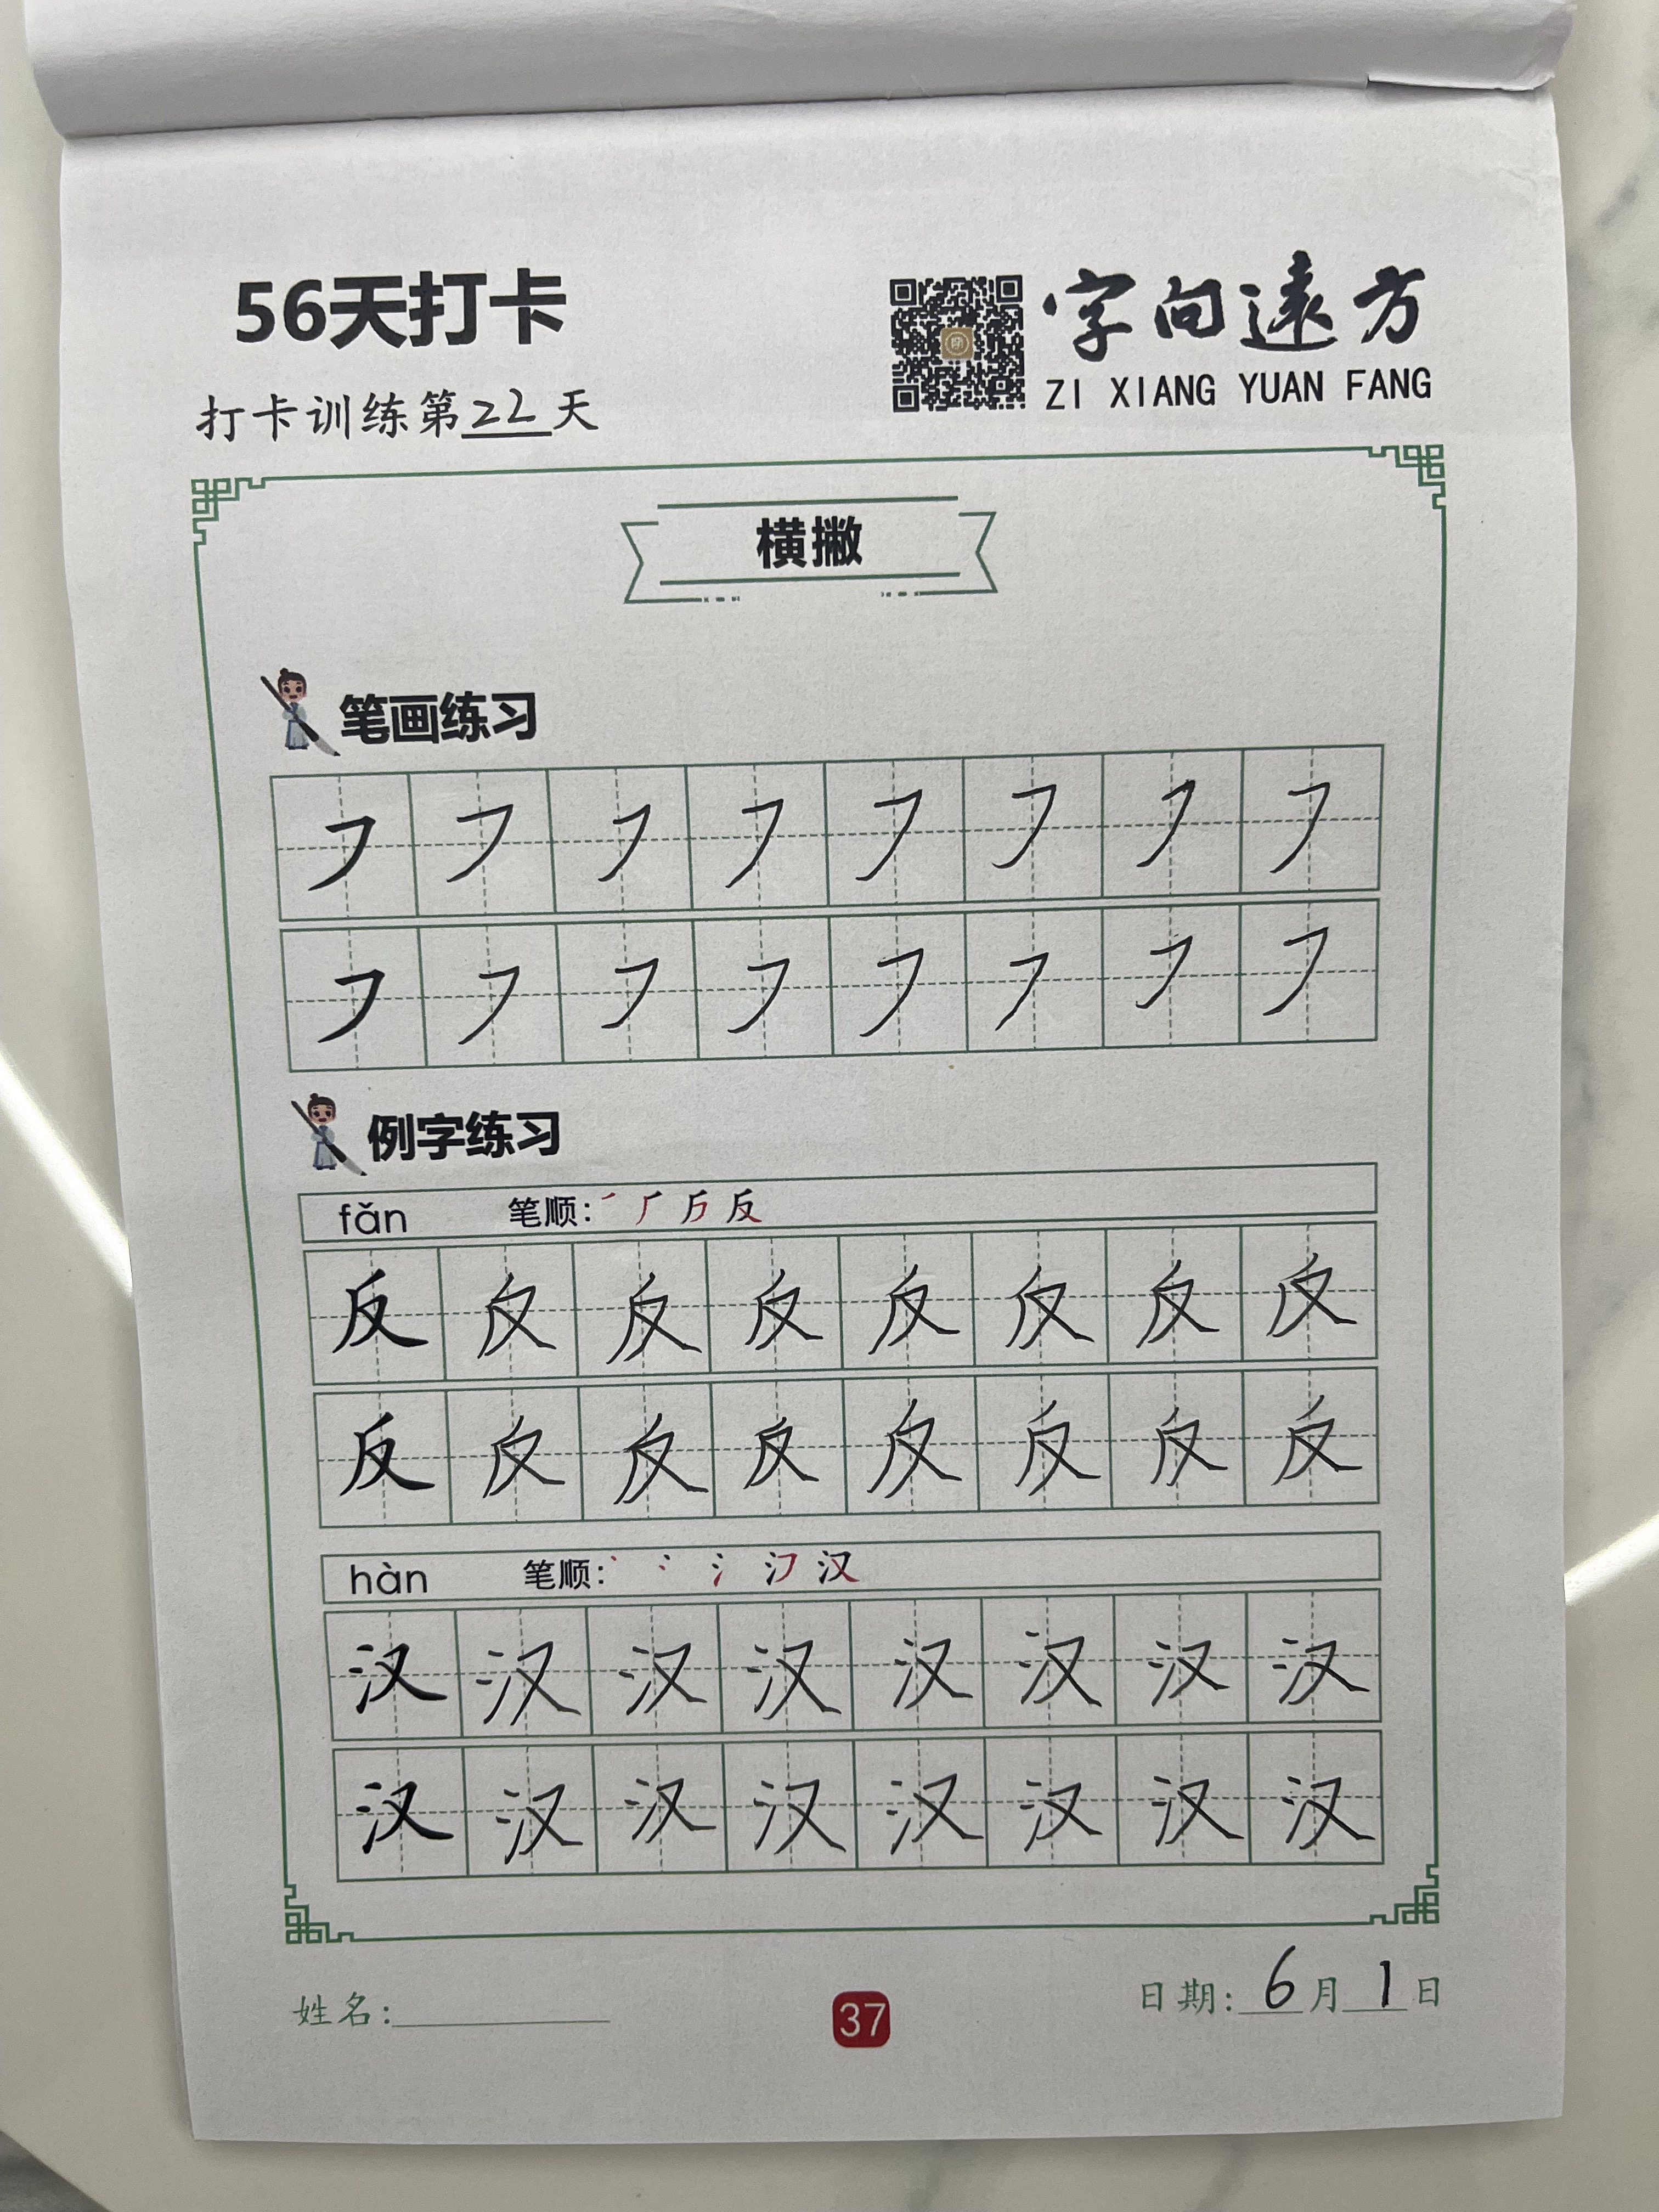 56天打卡
字向遠方
ZI XIANG YUAN FANG
打卡训练第22天
横撇
笔画练习
㇇ ㇇ ㇇ ㇇ ㇇ ㇇ ㇇ ㇇
㇇ ㇇ ㇇ ㇇ ㇇ ㇇ ㇇ ㇇
例字练习
fǎn 笔顺: 丿 厂 反
反 反 反 反 反 反 反 反
反 反 反 反 反 反 反 反
hàn 笔顺: 丶 冫 氵 汉
汉 汉 汉 汉 汉 汉 汉 汉
汉 汉 汉 汉 汉 汉 汉 汉
姓名:
37
日期: 6月1日